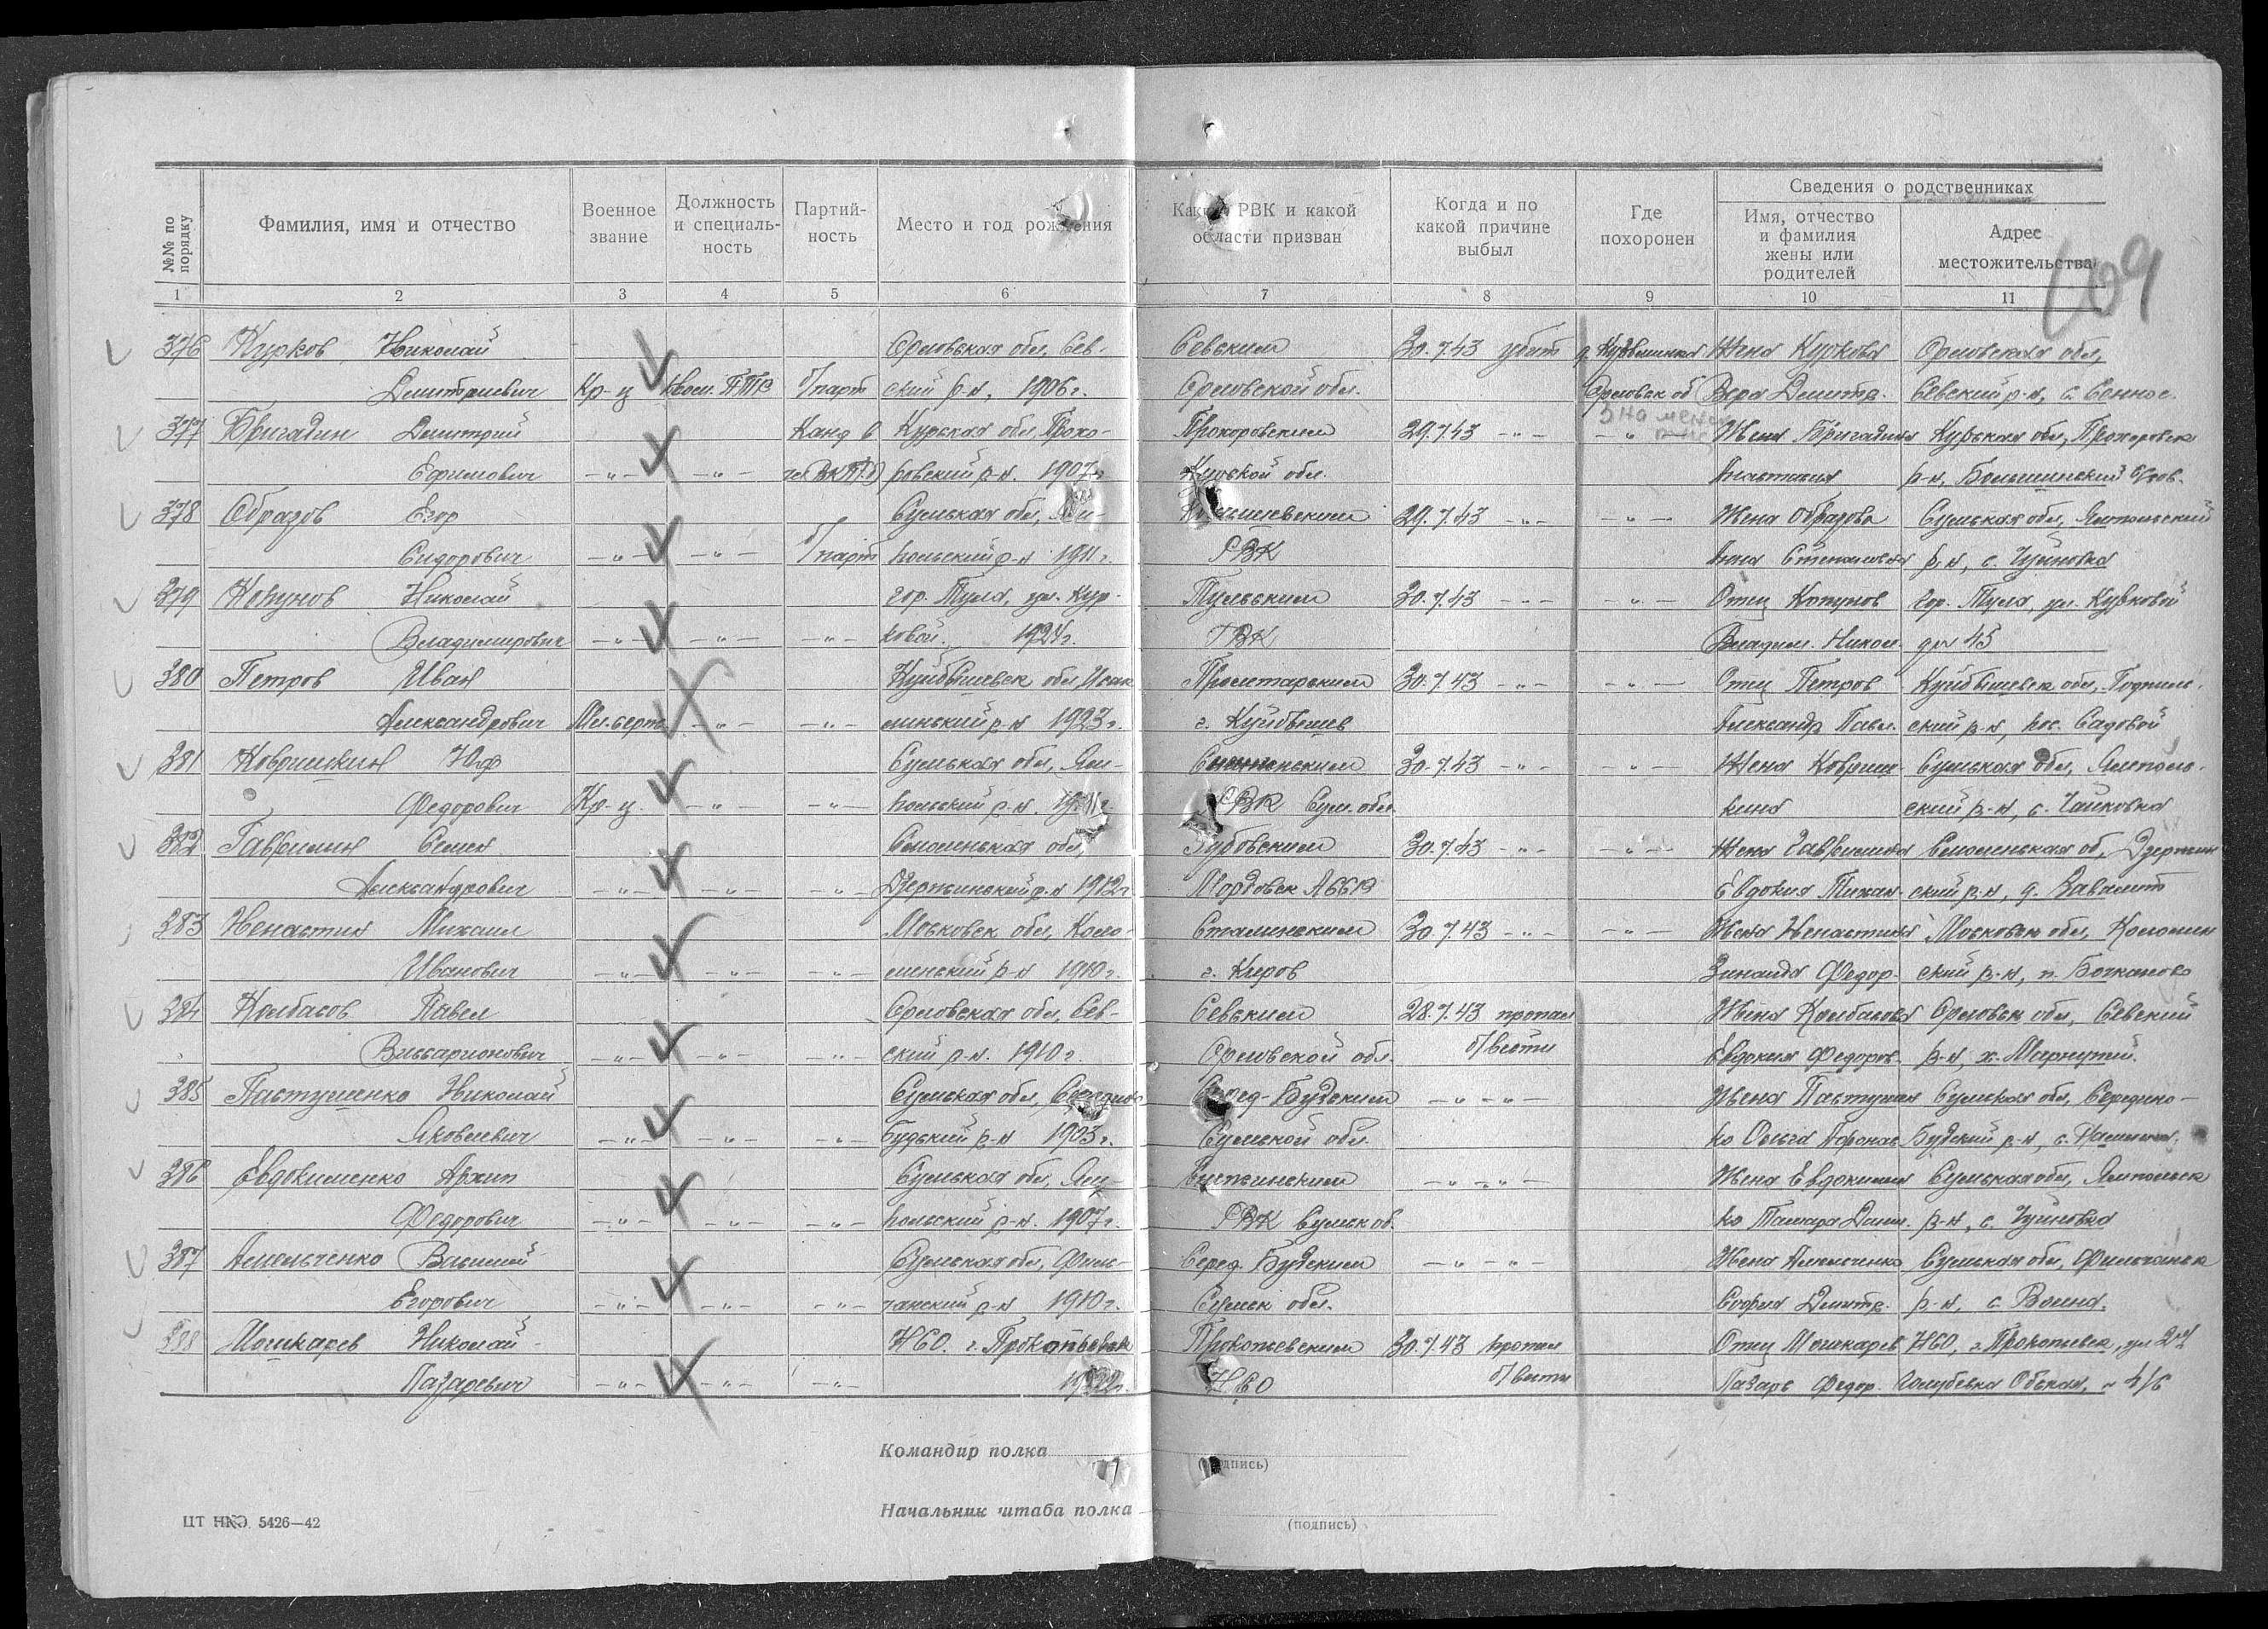 109
№№ по порядку
Фамилия, имя и отчество
Военное звание
Должность и специаль-ность
Партий-ность
Место и год рождения
Каким РВК и какой области призван
Когда и по какой причине выбыл
Где похоронен
Сведения о родственниках
Имя, отчество и фамилия жены или родителей
Адрес местожительства
1 2 3 4 5 6 7 8 9 10 11
376 Курков Николай Орловская обл, Сев- Севским 30.7.43 убит Жена Куркова Орловская обл,
Дмитриевич Кр-ц ПТР б/парт ский р-н, 1906 г. Орловской обл. Орловск об Вера Дмитр. Севский р-н, с. Сенное.
377 Бригадин Дмитрий Канд в Курская обл, Прохо- Прохоровским 29.7.43 -"- -"- Жена Бригадина Курская обл, Прохоровск
Ефимович -"- -"- ровский р-н. 1907 г Курской обл. Анастасия р-н,
378 Образов Егор Сумская обл, Ям- 29.7.43 -"- -"- Жена Образова Сумская обл, Ямпольский
Сидорович -"- -"- б/парт польский р-н 1911 г. РВК Анна Степановна р-н, с. Чуйковка
379 Копунов Николай гор. Тула, ул. Кур- Тульским 30.7.43 -"- -"- Отец Копунов гор. Тула, ул. Курковой
Владимирович -"- -"- -"- ковой. 1924 г. ГВК Владим. Никол. д № 45
380 Петров Иван Куйбышевск обл, Исак Пролетарским 30.7.43 -"- -"- Отец Петров Куйбышевск обл,
Александрович Мл. серж -"- -"- линский р-н 1923 г. г. Куйбышев Александр Павл. ский р-н, пос. Садовой
381 Ковришкин Сумская обл, Ям- 30.7.43 -"- -"- Жена Ковриш- Сумская обл, Ямполь-
Федорович Кр-ц. -"- -"- польский р-н. РВК Сум. обл. кина ский р-н, с. Чайковка
382 Гаврилин Семен Смоленская обл, Зубовским 30.7.43 -"- -"- Жена Гаврилина Смоленская об, Дзержин
Александрович -"- -"- -"- Дзержинский р-н 1912 г Мордовск АССР Евдокия ский р-н, д.
383 Ненастин Михаил Московск обл, Коло- Сталинским 30.7.43 -"- -"- Жена Ненастина Московск обл, Коломен
Иванович -"- -"- -"- менский р-н 1910 г. г. Киров Зинаида Федор. ский р-н, п.
384 Колбасов Павел Орловская обл, Сев- Севским 28.7.43 пропал Жена Колбасова Орловск обл, Севский
Виссарионович -"- -"- -"- ский р-н. 1910 г. Орловской обл. б/вести Евдокия Федоров. р-н, х.
385 Пастушенко Николай Сумская обл, Серед-Будским -"- -"- Жена Пастушен Сумская обл, Середино-
Яковлевич -"- -"- -"- Будский р-н 1903 г. Сумской обл. ко Ольга Афонас. Будский р-н, с.
386 Евдокименко Архип Сумская обл, Ям- -"- -"- Жена Евдокимен Сумская обл, Ямпольск
Федорович -"- -"- -"- польский р-н. 1907 г. РВК Сумск об. ко Тамара Дани. р-н, с. Чуйковка
387 Амельченко Василий Сумская обл, Серед. Будским -"- -"- Жена Амельченко Сумская обл,
Егорович -"- -"- -"- чанский р-н 1910 г. Сумск обл. София Дмитр. р-н, с.
388 Мошкарев Николай НСО. г. Прокопьевск Прокопьевским 30.7.43 пропал Отец Мошкарев НСО, г. Прокопьевск, ул 2я
Лазаревич -"- -"- -"- 1922 г. НСО б/вести Лазарь Федор. № 4/6
Командир полка
(подпись)
Начальник штаба полка
(подпись)
ЦТ НКО 5426—42